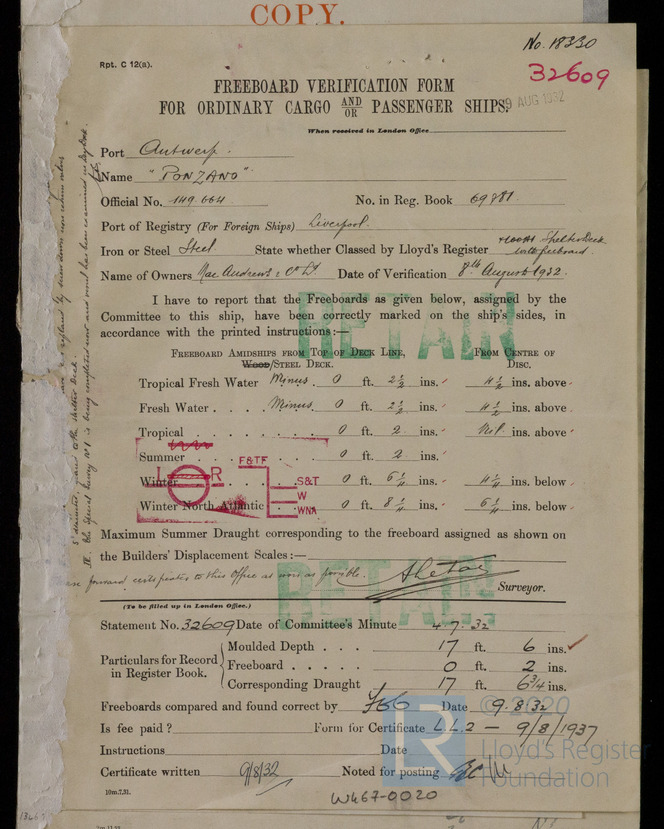 COPY.
No. 18330
Rpt. C 12(a).
32609
FREEBOARD VERIFICATION FORM
FOR ORDINARY CARGO AND/OR PASSENGER SHIPS.
9 AUG 1932
When received in London Office
Port Antwerp.
Name "PONZANO"
Official No. 149.664 No. in Reg. Book 69781.
Port of Registry (For Foreign Ships) Liverpool.
Iron or Steel Steel. State whether Classed by Lloyd's Register Shelter Deck with freeboard.
Name of Owners Mac Andrews & Co Ld. Date of Verification 8th August 1932.
I have to report that the Freeboards as given below, assigned by the
Committee to this ship, have been correctly marked on the ship's sides, in
accordance with the printed instructions:—
RETAIN
FREEBOARD AMIDSHIPS FROM TOP OF DECK LINE, FROM CENTRE OF
WOOD/STEEL DECK. DISC.
Tropical Fresh Water Minus. 0 ft. 2 1/2 ins. 4 1/2 ins. above
Fresh Water . . . . Minus. 0 ft. 2 1/2 ins. 4 1/2 ins. above
Tropical . . . . . . . 0 ft. 2 ins. Nil. ins. above
Summer . . . . . . . 0 ft. 2 ins.
Winter 0 ft. 6 1/4 ins. 4 1/4 ins. below
Winter North Atlantic 0 ft. 8 1/4 ins. 6 1/4 ins. below
L R
F&TF
S&T
W
WNA
Maximum Summer Draught corresponding to the freeboard assigned as shown on
the Builders' Displacement Scales:—
forward certificates to this Office as soon as possible.
Surveyor.
RETAIN
(To be filled up in London Office.)
Statement No. 32609 Date of Committee's Minute 4.7.32
Particulars for Record in Register Book.
Moulded Depth . . . 17 ft. 6 ins.
Freeboard . . . . . 0 ft. 2 ins.
Corresponding Draught 17 ft. 6 3/4 ins.
Freeboards compared and found correct by Date 9.8.32
Is fee paid? Form for Certificate L.L.2 — 9/8/1937
Instructions Date
Certificate written 9/8/32 Noted for posting
10m.7,31.
W467-0020
© 2020
Lloyd's Register
Foundation